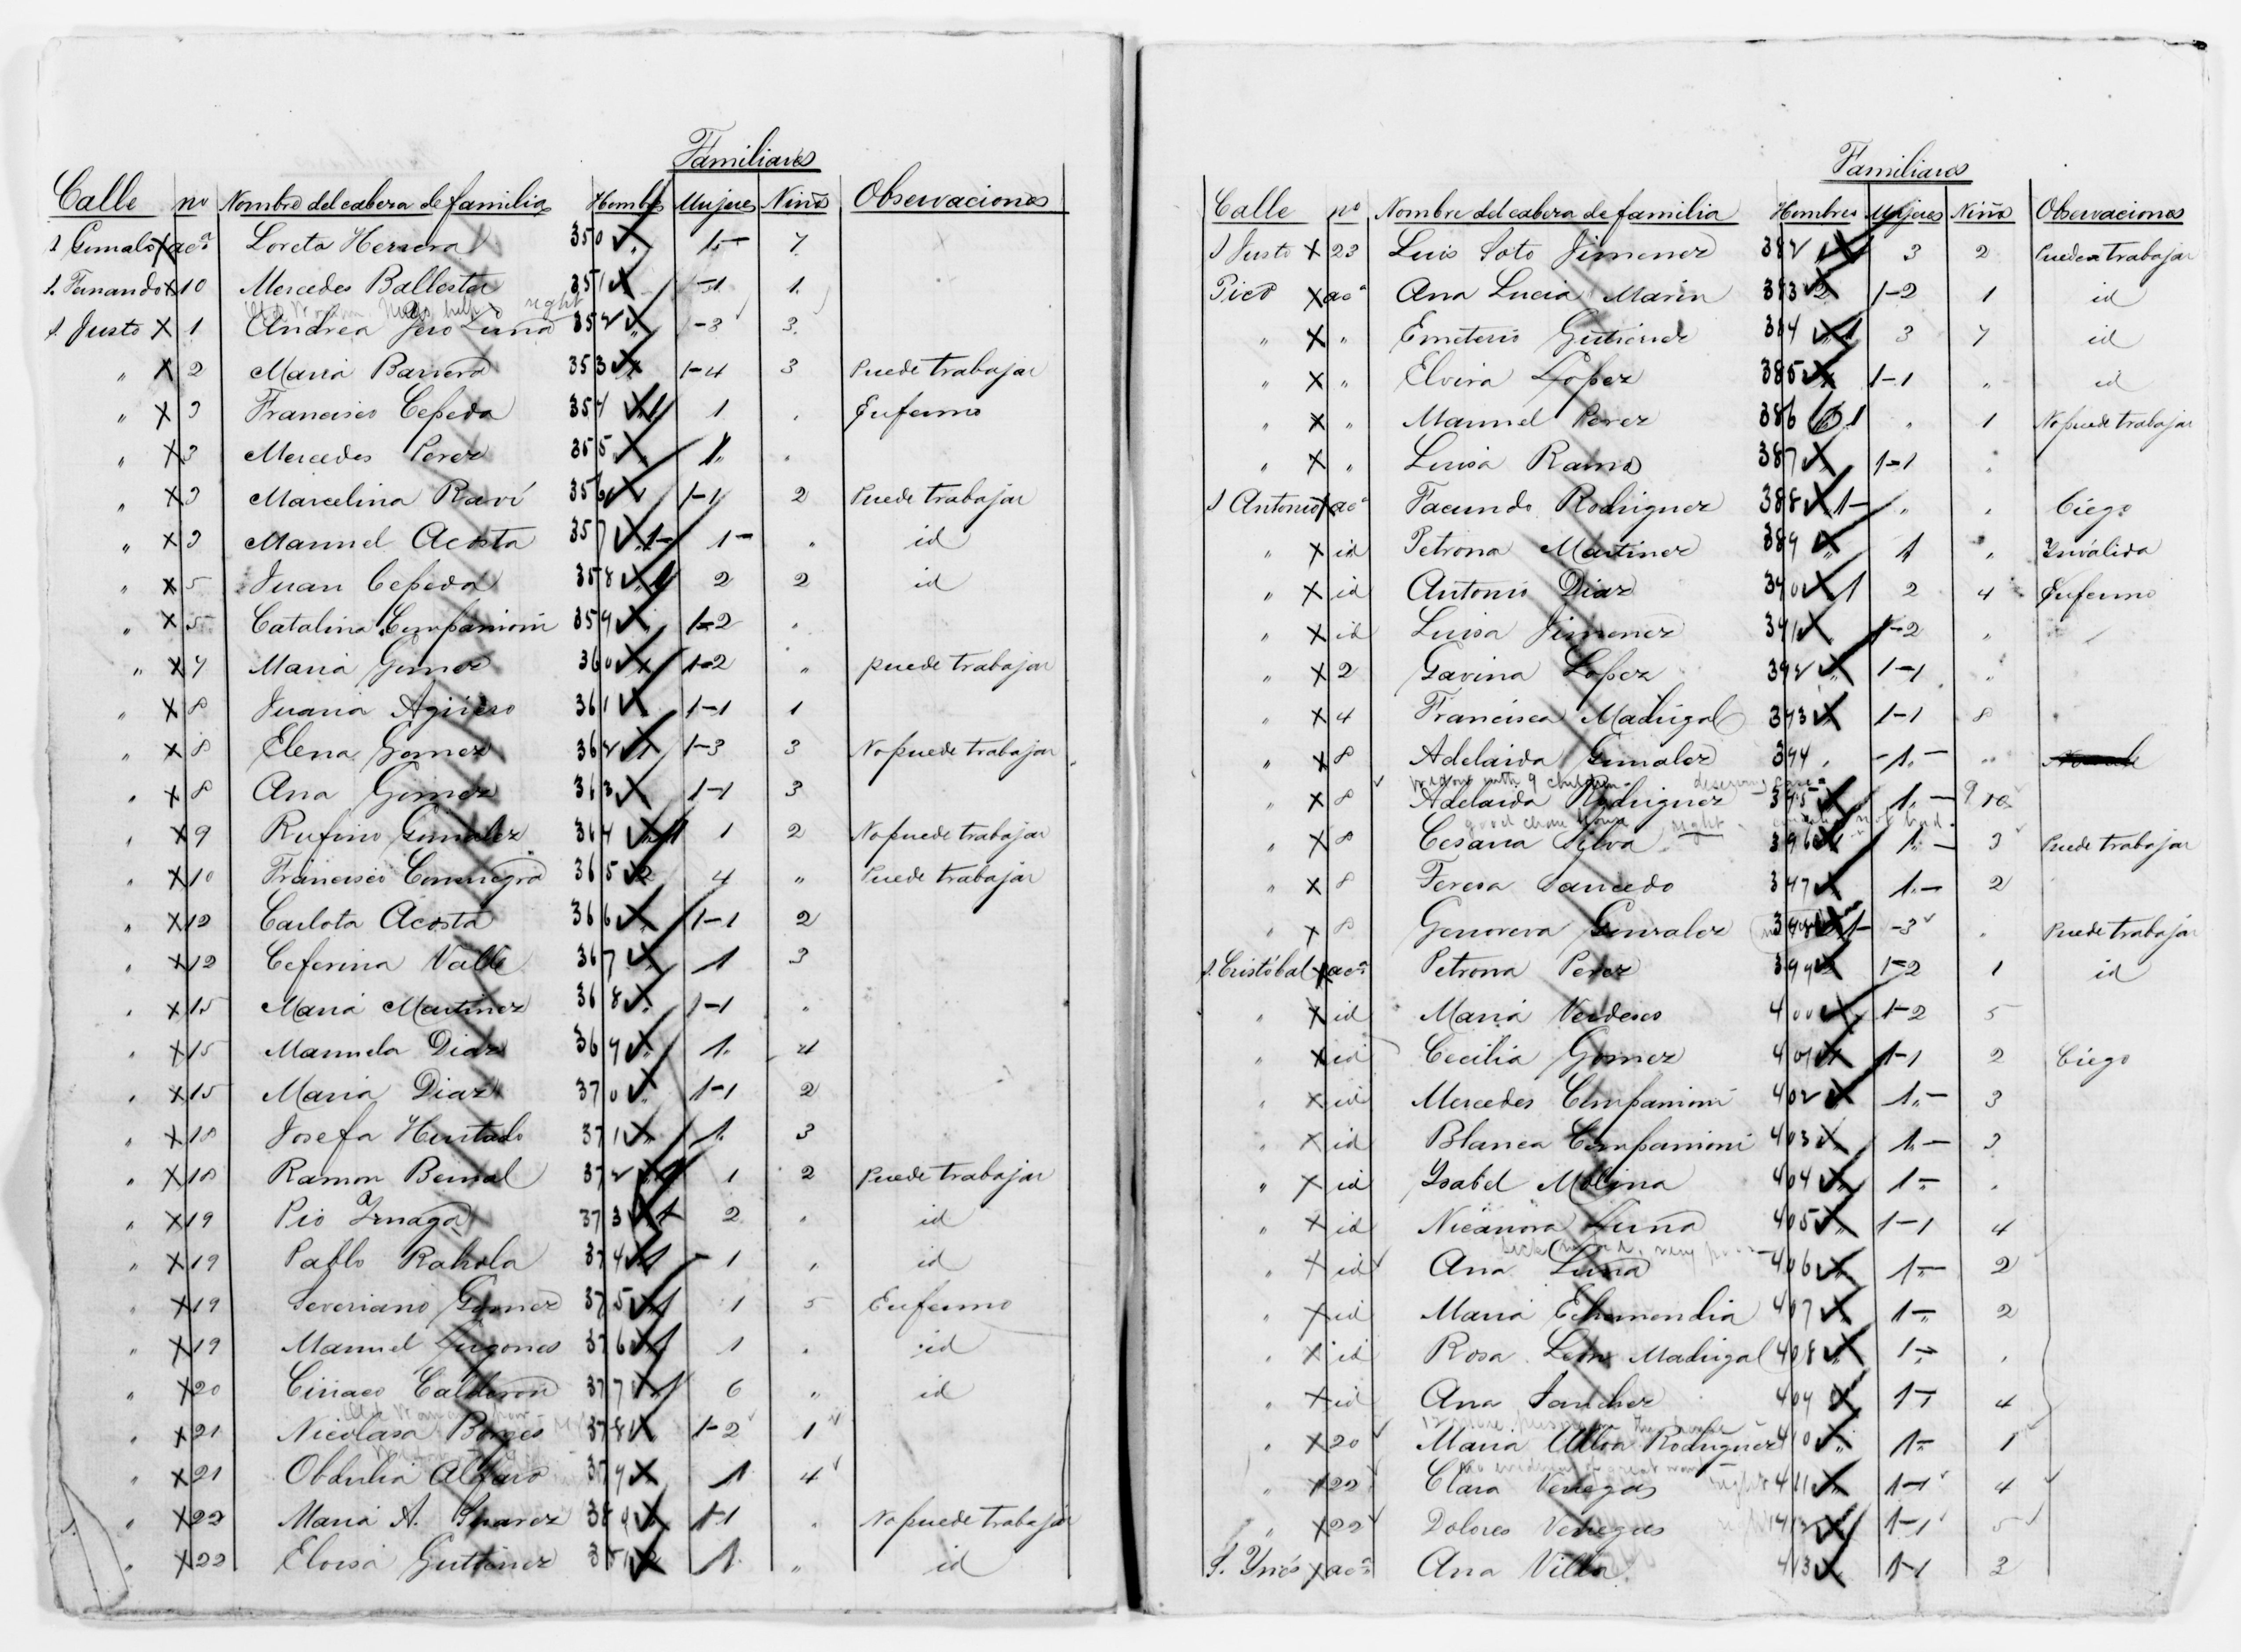 Familiares
Calle no Nombre del cabeza de familia Hombres Mujeres Niños Observaciones
S Gonzalo X ac^a Loreto Herrera 350 1- 7
S. Fernando X 10 Mercedes Ballester 351 1-1 1
Old Woman Needs help right
S Justo X 1 Andrea Luna 352 1-3 3
" X 2 Maria Barrera 353 1-4 3 Puede trabajar
" X 3 Francisco Cepeda 354 1 1 " Enfermo
" X 3 Mercedes Perez 355 1 "
" X 3 Marcelina Raví 356 1-1 2 Puede trabajar
" X 3 Manuel Acosta 357 1- 1- " id
" X 5 Juan Cepeda 358 1 2 2 id
" X 5 Catalina Companioni 359 1-2 "
" X 7 Maria Gomez 360 1-2 " puede trabajar
" X 8 Juana Agüero 361 1-1 1
" X 8 Elena Gomez 362 1-3 3 No puede trabajar
" X 8 Ana Gomez 363 1-1 3
" X 9 Rufino Gonzalez 364 1 1 2 No puede trabajar
" X 10 Francisco 365 2 4 " Puede trabajar
" X 12 Carlota Acosta 366 1-1 2
" X 12 Ceferina Valle 367 1 3
" X 15 Maria Martinez 368 1-1 "
" X 15 Manuela Diaz 369 1 4
" X 15 Maria Diaz 370 1-1 2
" X 18 Josefa Hurtado 371 1 3
" X 18 Ramon Bernal 372 1 1 2 Puede trabajar
" X 19 Pio Yznaga 373 1 2 " id
" X 19 Pablo Rahola 374 1 - 1 " id
" X 19 Severiano Gomez 375 1 1 5 Enfermo
" X 19 Manuel Lugones 376 1 1 " id
" X 20 Ciriaco Calderon 377 1 6 " id
Old Woman poor
" X 21 Nicolasa Borges 378 1-2 1
" X 21 Obdulia Alfaro 379 1 4
" X 22 Maria A. Suarez 380 1-1 " No puede trabajar
" X 22 Eloisa Gutierrez 381 2 1 " id
Familiares
Calle no Nombre del cabeza de familia Hombres Mujeres Niños Observaciones
S Justo X 23 Luis Soto Jimenez 382 1 3 2 Pueden trabajar
Pico X ac^a Ana Lucia Marin 383 2 1-2 1 id
" X " Emeterio Gutierrez 384 1 3 7 id
" X " Elvira Lopez 385 1-1 " id
" X " Manuel Perez 386 1 " 1 No puede trabajar
" X " Luisa Ramos 387 1-1 "
S Antonio X ac^a Facundo Rodriguez 388 1- " " Ciego
" X id Petrona Martinez 389 1 " Ynválida
" X id Antonio Diaz 390 1 2 4 Enfermo
" X id Luisa Jimenez 391 1-2 "
" X 2 Gavina Lopez 392 1-1 "
" X 4 Francisca Madrigal 393 1-1 8
" X 8 Adelaida Gonzalez 394 -1- "
widow with 9 children deserving case
" X 8 Adelaida Rodriguez 395 1- 9 10
good clean house right not bad
" X 8 Cesaria Silva 396 1- 3 Puede trabajar
" X 8 Teresa Saucedo 397 1- 2
" X 8 Genoveva Gonzalez 398 1- -3 " Puede trabajar
S. Cristóbal X ac^a Petrona Perez 399 1-2 1 id
" X id Maria Verdeses 400 1-2 5
" X id Cecilia Gomez 401 1-1 2 Ciego
" X id Mercedes Companioni 402 1- 3
" X id Blanca Companioni 403 1- 3
" X id Ysabel Molina 404 1- "
" X id Nicanora Luna 405 1-1 4
sick very poor
" X id Ana Luna 406 1- 2
" X id Maria Echemendia 407 1- 2
" X id Rosa Leon Madrigal 408 1- "
" X id Ana Sanchez 409 1- 4
" X 20 Maria Ulloa Rodriguez 410 1- 1
no evidence of great want
" X 22 Clara Venegas right 411 1-1 4
" X 22 Dolores Venegas 412 1-1 5
S. Ynés X ac^a Ana Villa 413 1-1 2